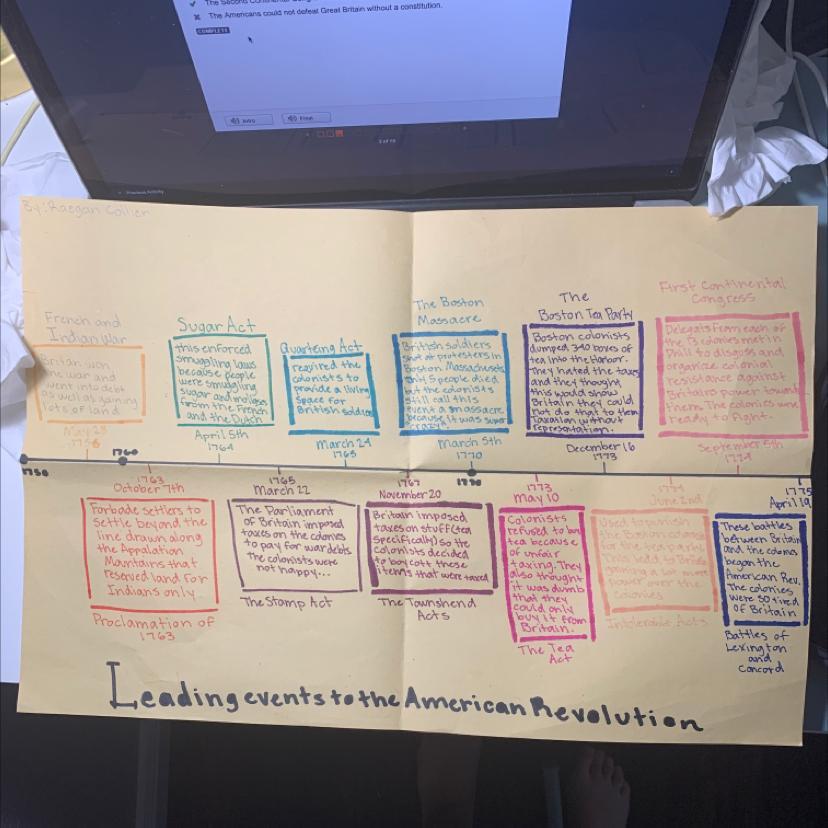 The Americans could not defeat Great Britain without a constitution.
COMPLETE
Intro
Previous Activity
By: Raegan Collier
French and
Indian War
Britain won
the war and
went into debt
as well as gaining
lots of land
1756
Sugar Act
this enforced
smuggling laws
because people
were smuggling
sugar and
from the French
and the Dutch
April 5th
1764
Quartering Act
required the
colonists to
provide a living
space for
British soldiers
March 24
1765
The Boston
Massacre
British soldiers
shot at protesters in
Boston
5 people died
but the colonists
still call this
event a massacre
because it was super
crazy.
March 5th
1770
The
Boston Tea Party
Boston colonists
dumped 340 boxes of
tea into the Harbor.
They hated the taxes
and they thought
this would show
Britain they could
not do that to them
Taxation without
representation.
December 16
1773
First Continental
Congress
Delegats from each of
the 13 colonies met in
Phili to and
organize colonial
resistance against
Britains power toward
them. The colonies were
ready to fight.
September 5th
1774
1750
1760
1770
1763
October 7th
Forbade settlers to
settle beyond the
line drawn along
the Appalation
Mountains that
reserved land for
Indians only
Proclamation of
1763
1765
March 22
The Parliament
of Britain imposed
taxes on the colonies
to pay for war debts
the colonists were
not happy...
The Stamp Act
1767
November 20
Britain imposed
taxes on stuff (tea
specifically) so the
colonists decided
to boycott these
items that were taxed
The Townshend
Acts
1773
May 10
Colonists
refused to buy
tea because
of unfair
taxing. They
also thought
it was dumb
that they
could only
buy it from
Britain.
The Tea
Act
1774
June 2nd
Used to punish
the
for the tea party
This led to
gaining a lot more
power over the
colonies
Intolerable Acts
1775
April 19
These battles
between Britain
and the colonies
began the
American Rev.
The colonies
were so tired
of Britain
Battles of
Lexington
and
Concord
Leading events to the American Revolution